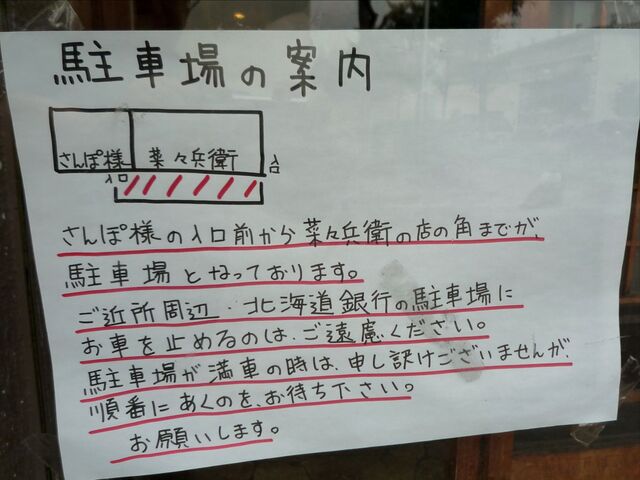 駐車場の案内
さんぽ様 菜々兵衛
入口 入口
さんぽ様の入口前から菜々兵衛の店の角までが、
駐車場となっております。
ご近所周辺・北海道銀行の駐車場に
お車を止めるのは、ご遠慮ください。
駐車場が満車の時は、申し訳けございませんが、
順番にあくのを、お待ち下さい。
お願いします。